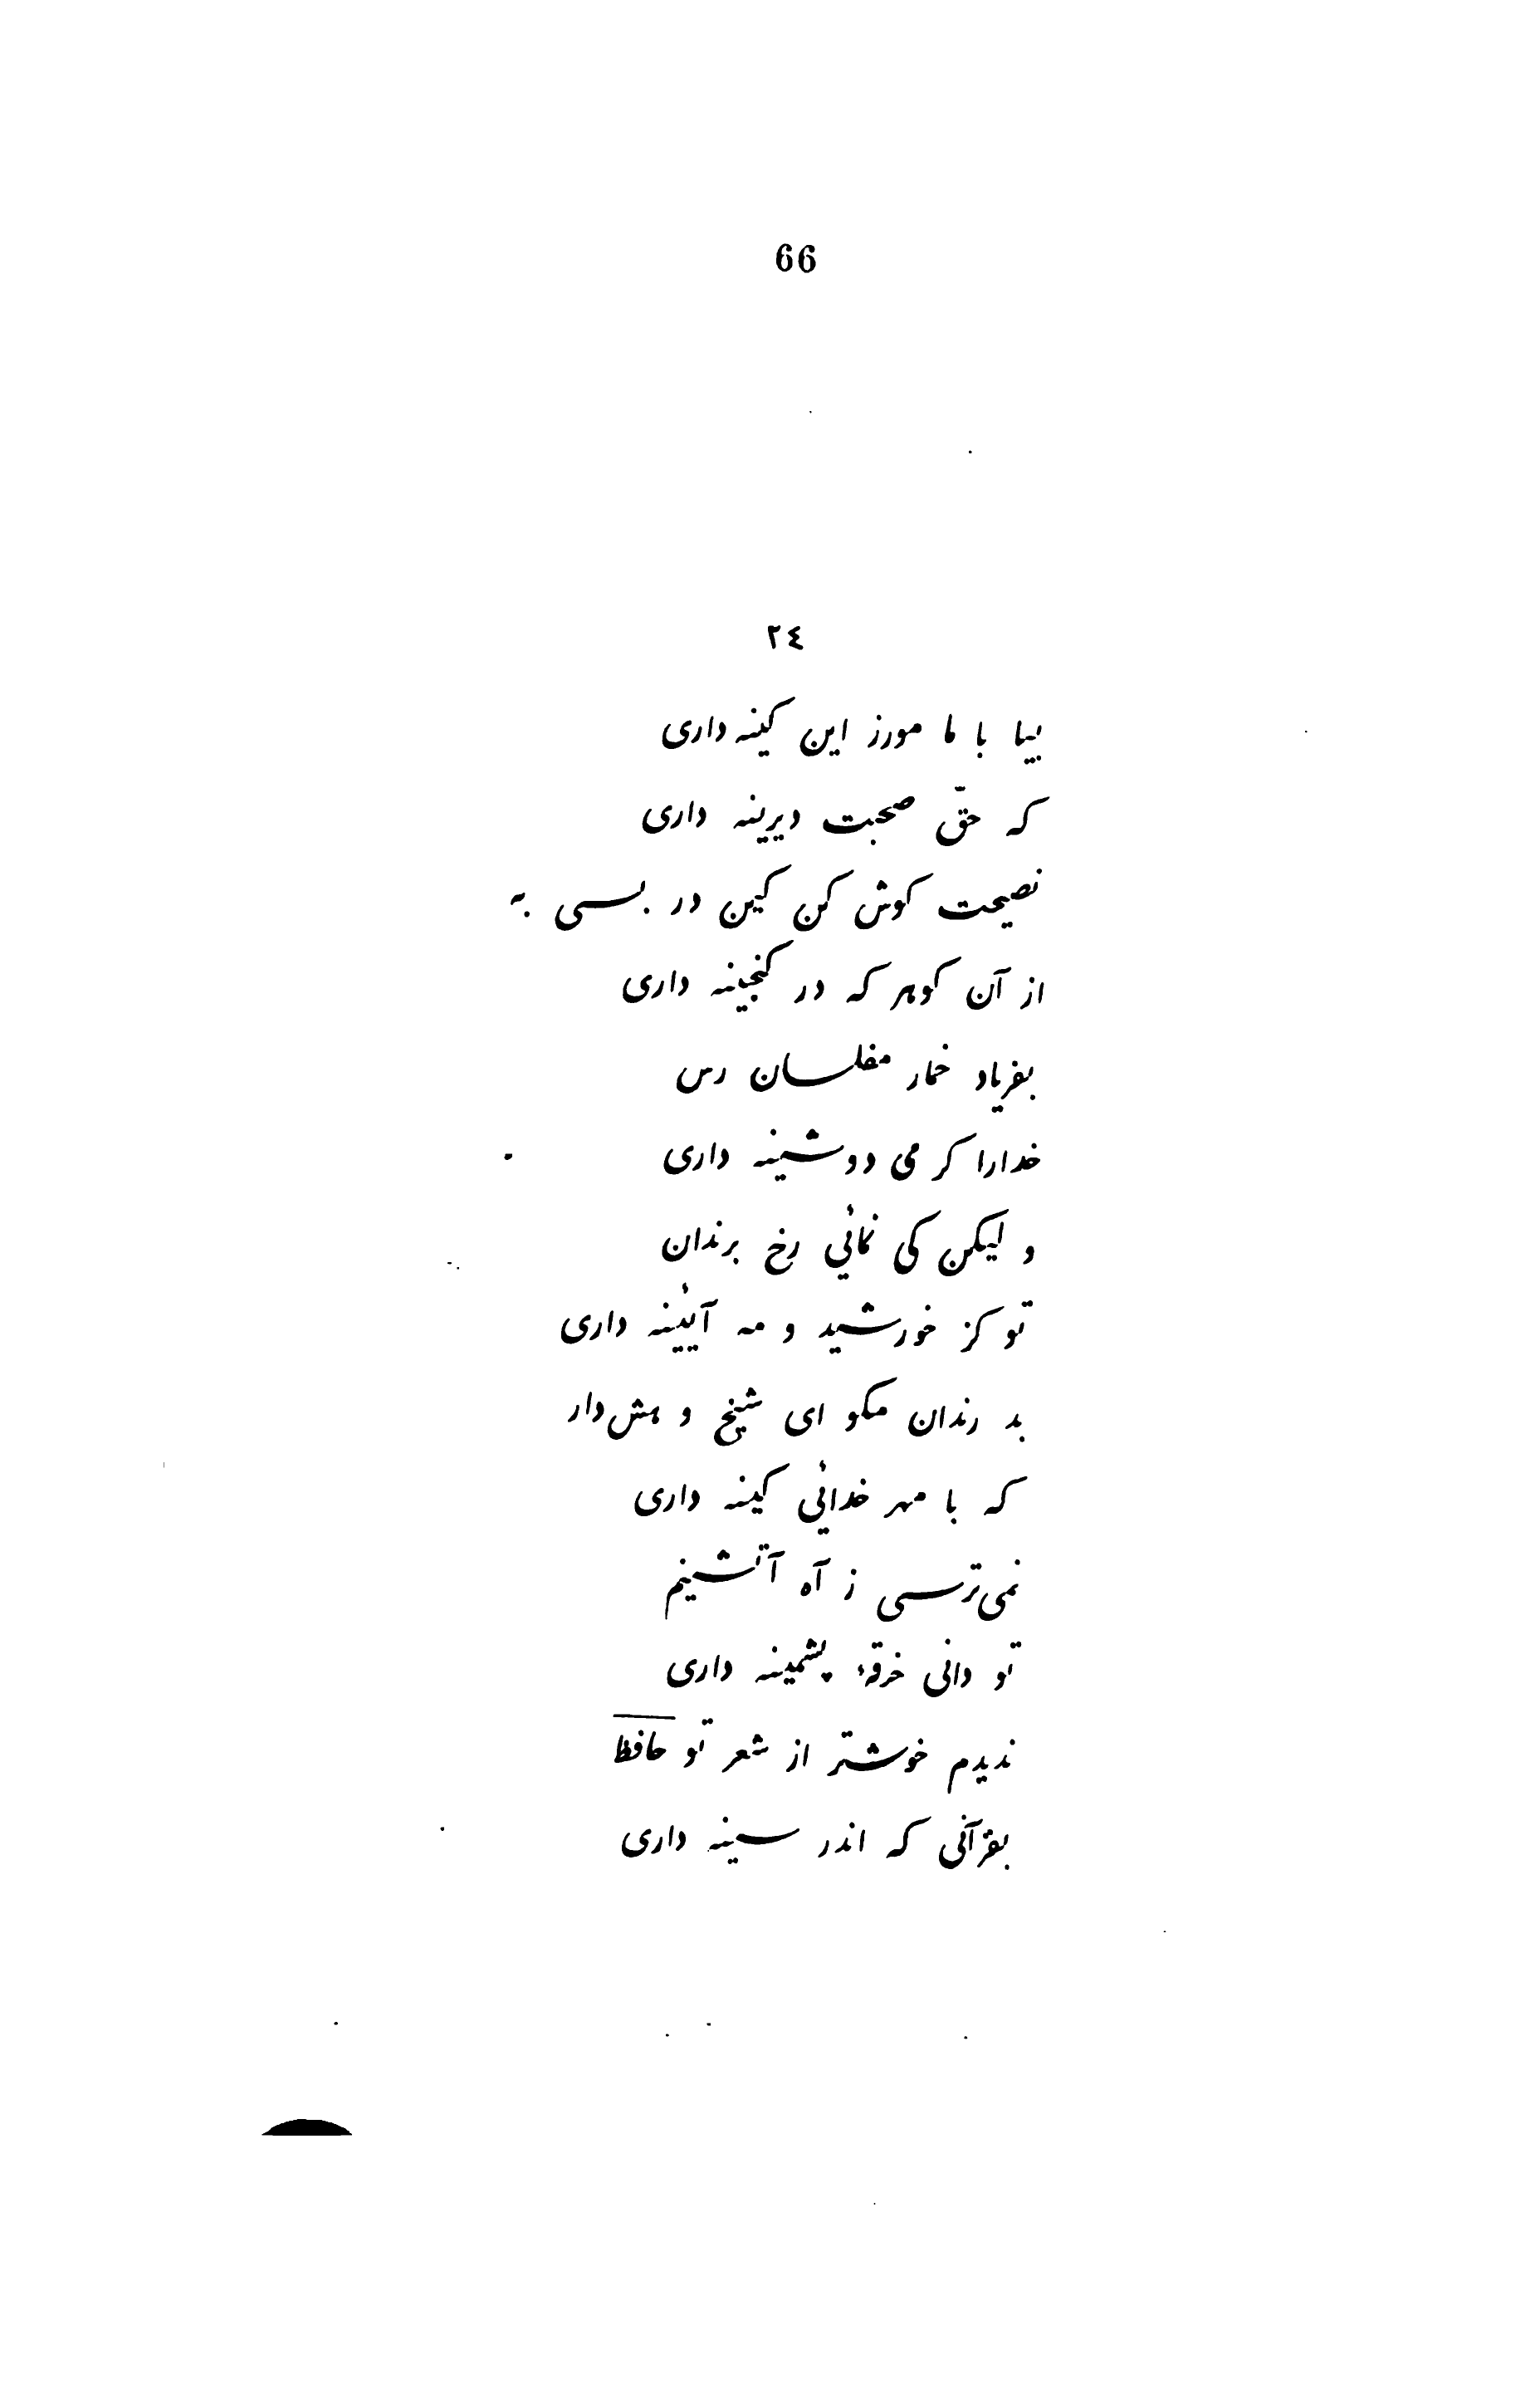 66
٢٤
بیا با ما مورز این کینه‌داری
که حقّ صحبت دیرینه داری
نصیحت کوش کن کین در بسی به
از آن کوهر که در کنجینه داری
بفریاد خمار مفلسان رس
خدارا کر می دوشینه داری
و لیکن کی نمائی رخ برندان
تو کز خورشید و مه آئینه داری
بد رندان مکو ای شیخ و هش‌دار
که با مهر خدائی کینه داری
نمی‌ترسی ز آه آتشینم
تو دانی خرقهٔ پشمینه داری
ندیدم خوشتر از شعر تو حافظ
بقرآنی که اندر سینه داری